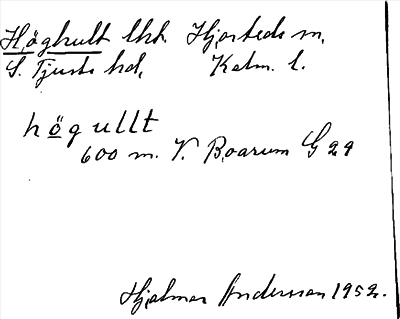 Höghult lht. Hjorteds sn,
S. Tjusts hd, Kalm. l.
högullt
600 m. V. Boarum G 29
Hjalmar Andersson 1952.